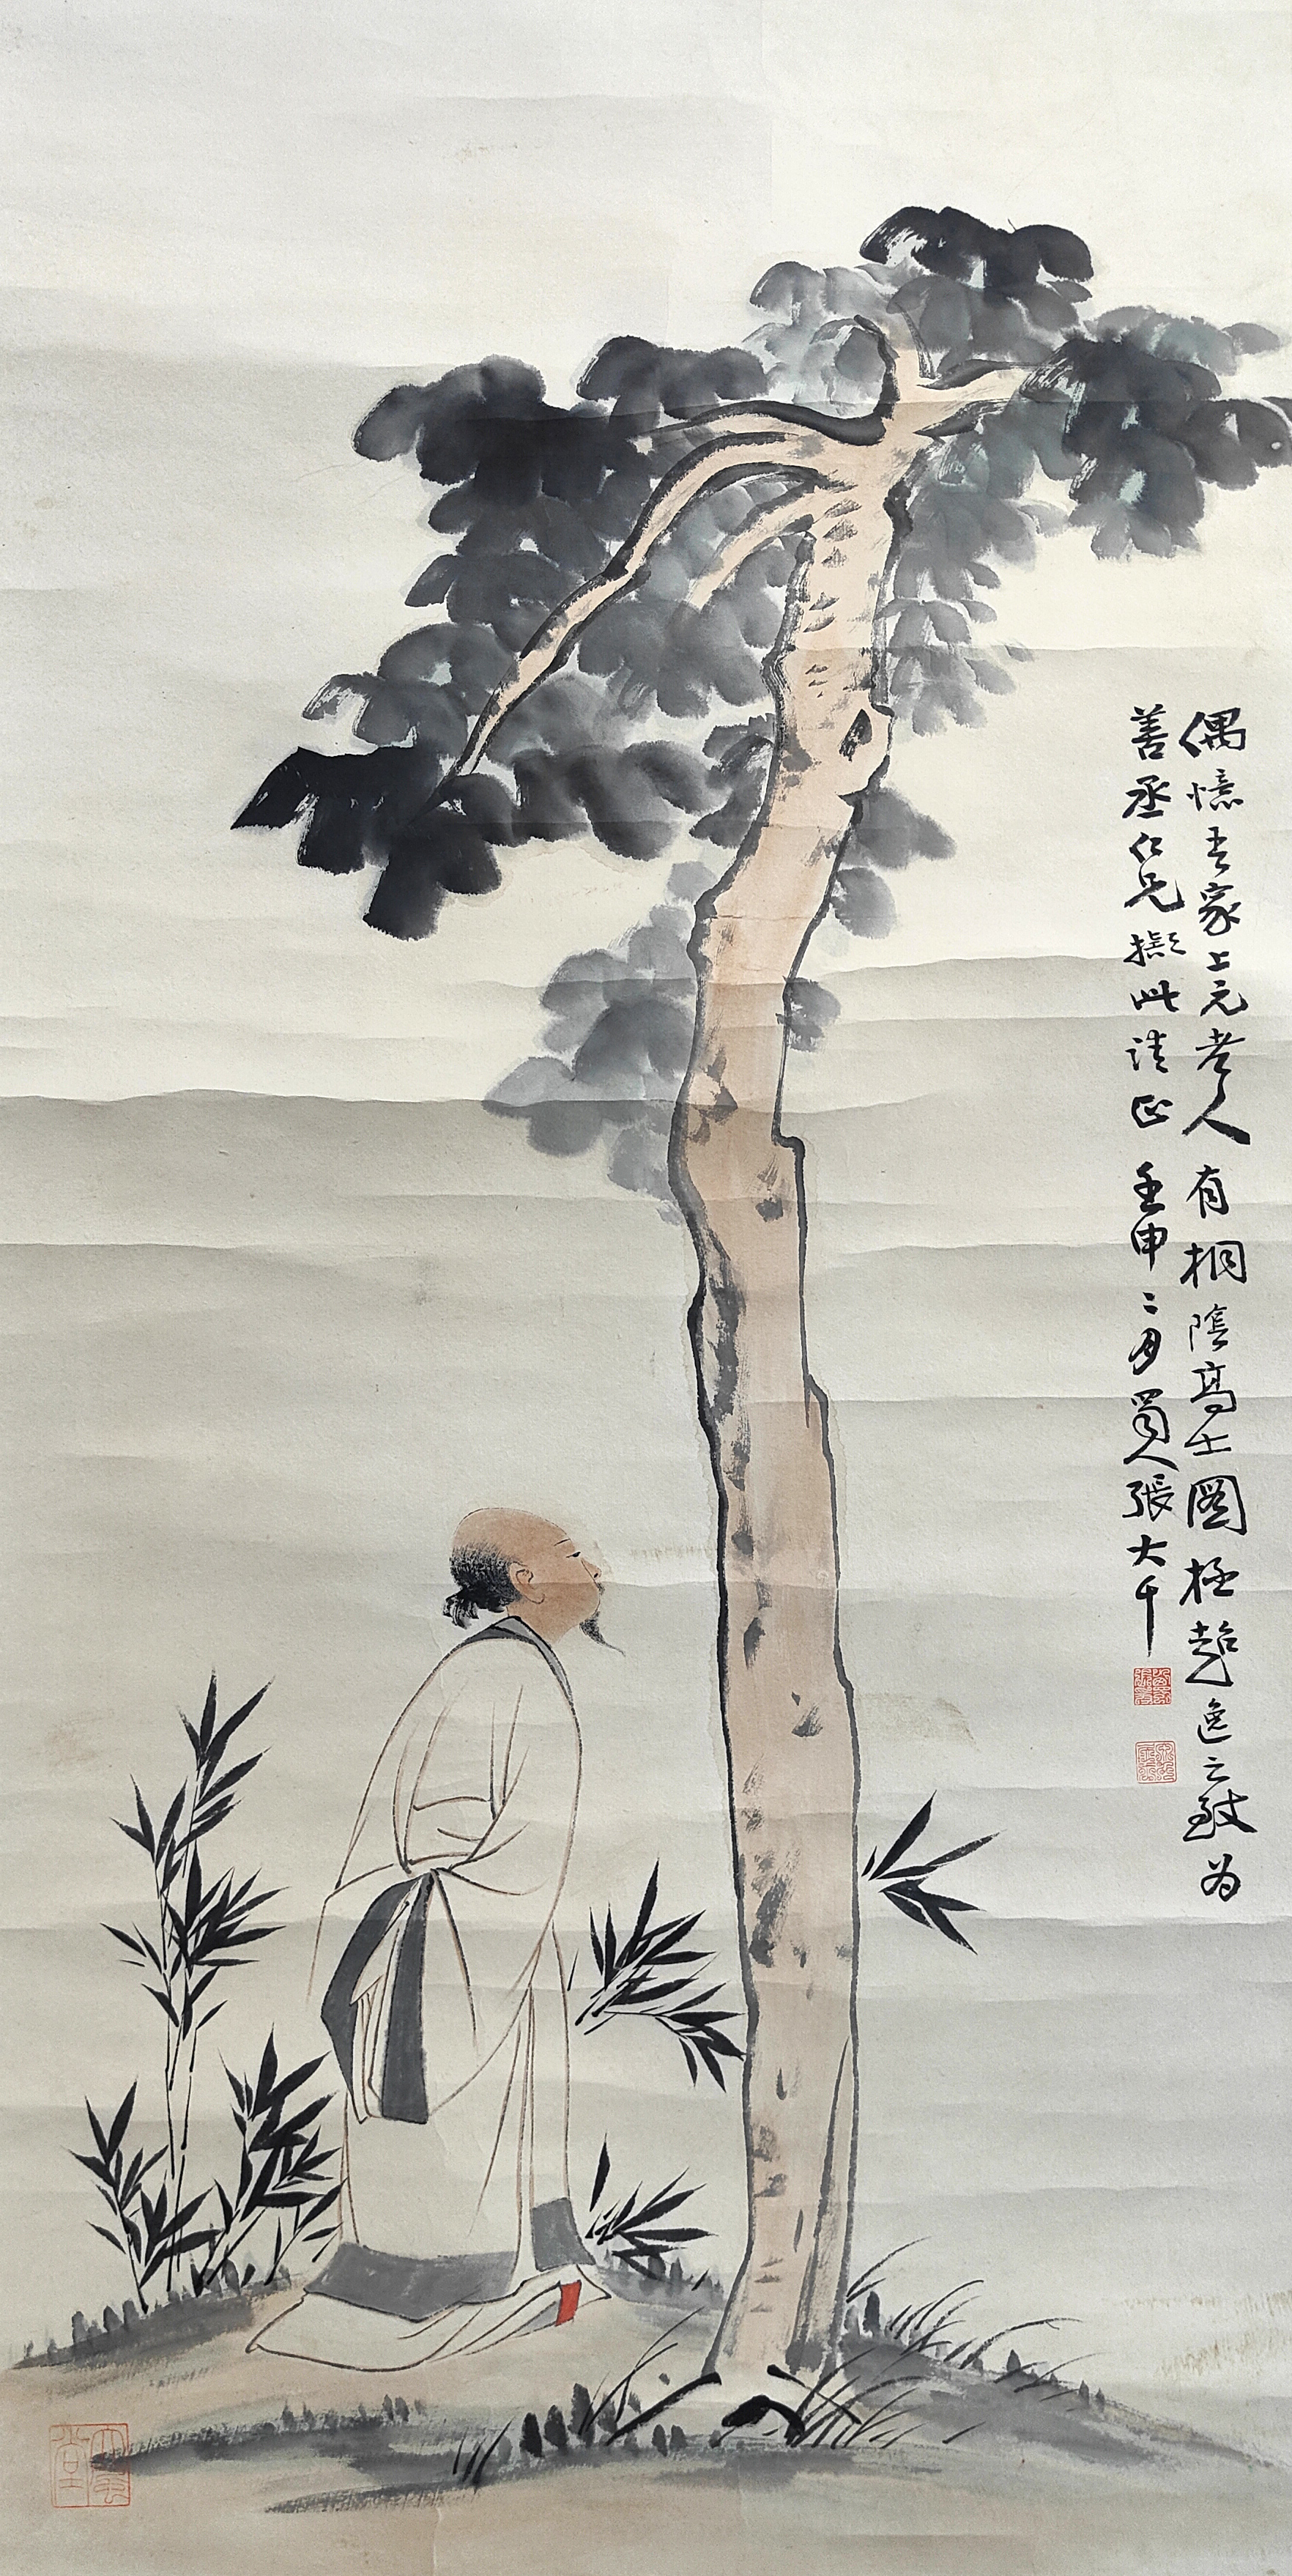 偶憶吾家上元老人有桐陰高士圖極超逸之致为
善丞仁兄擬此請正壬申二月蜀人張大千
大風堂